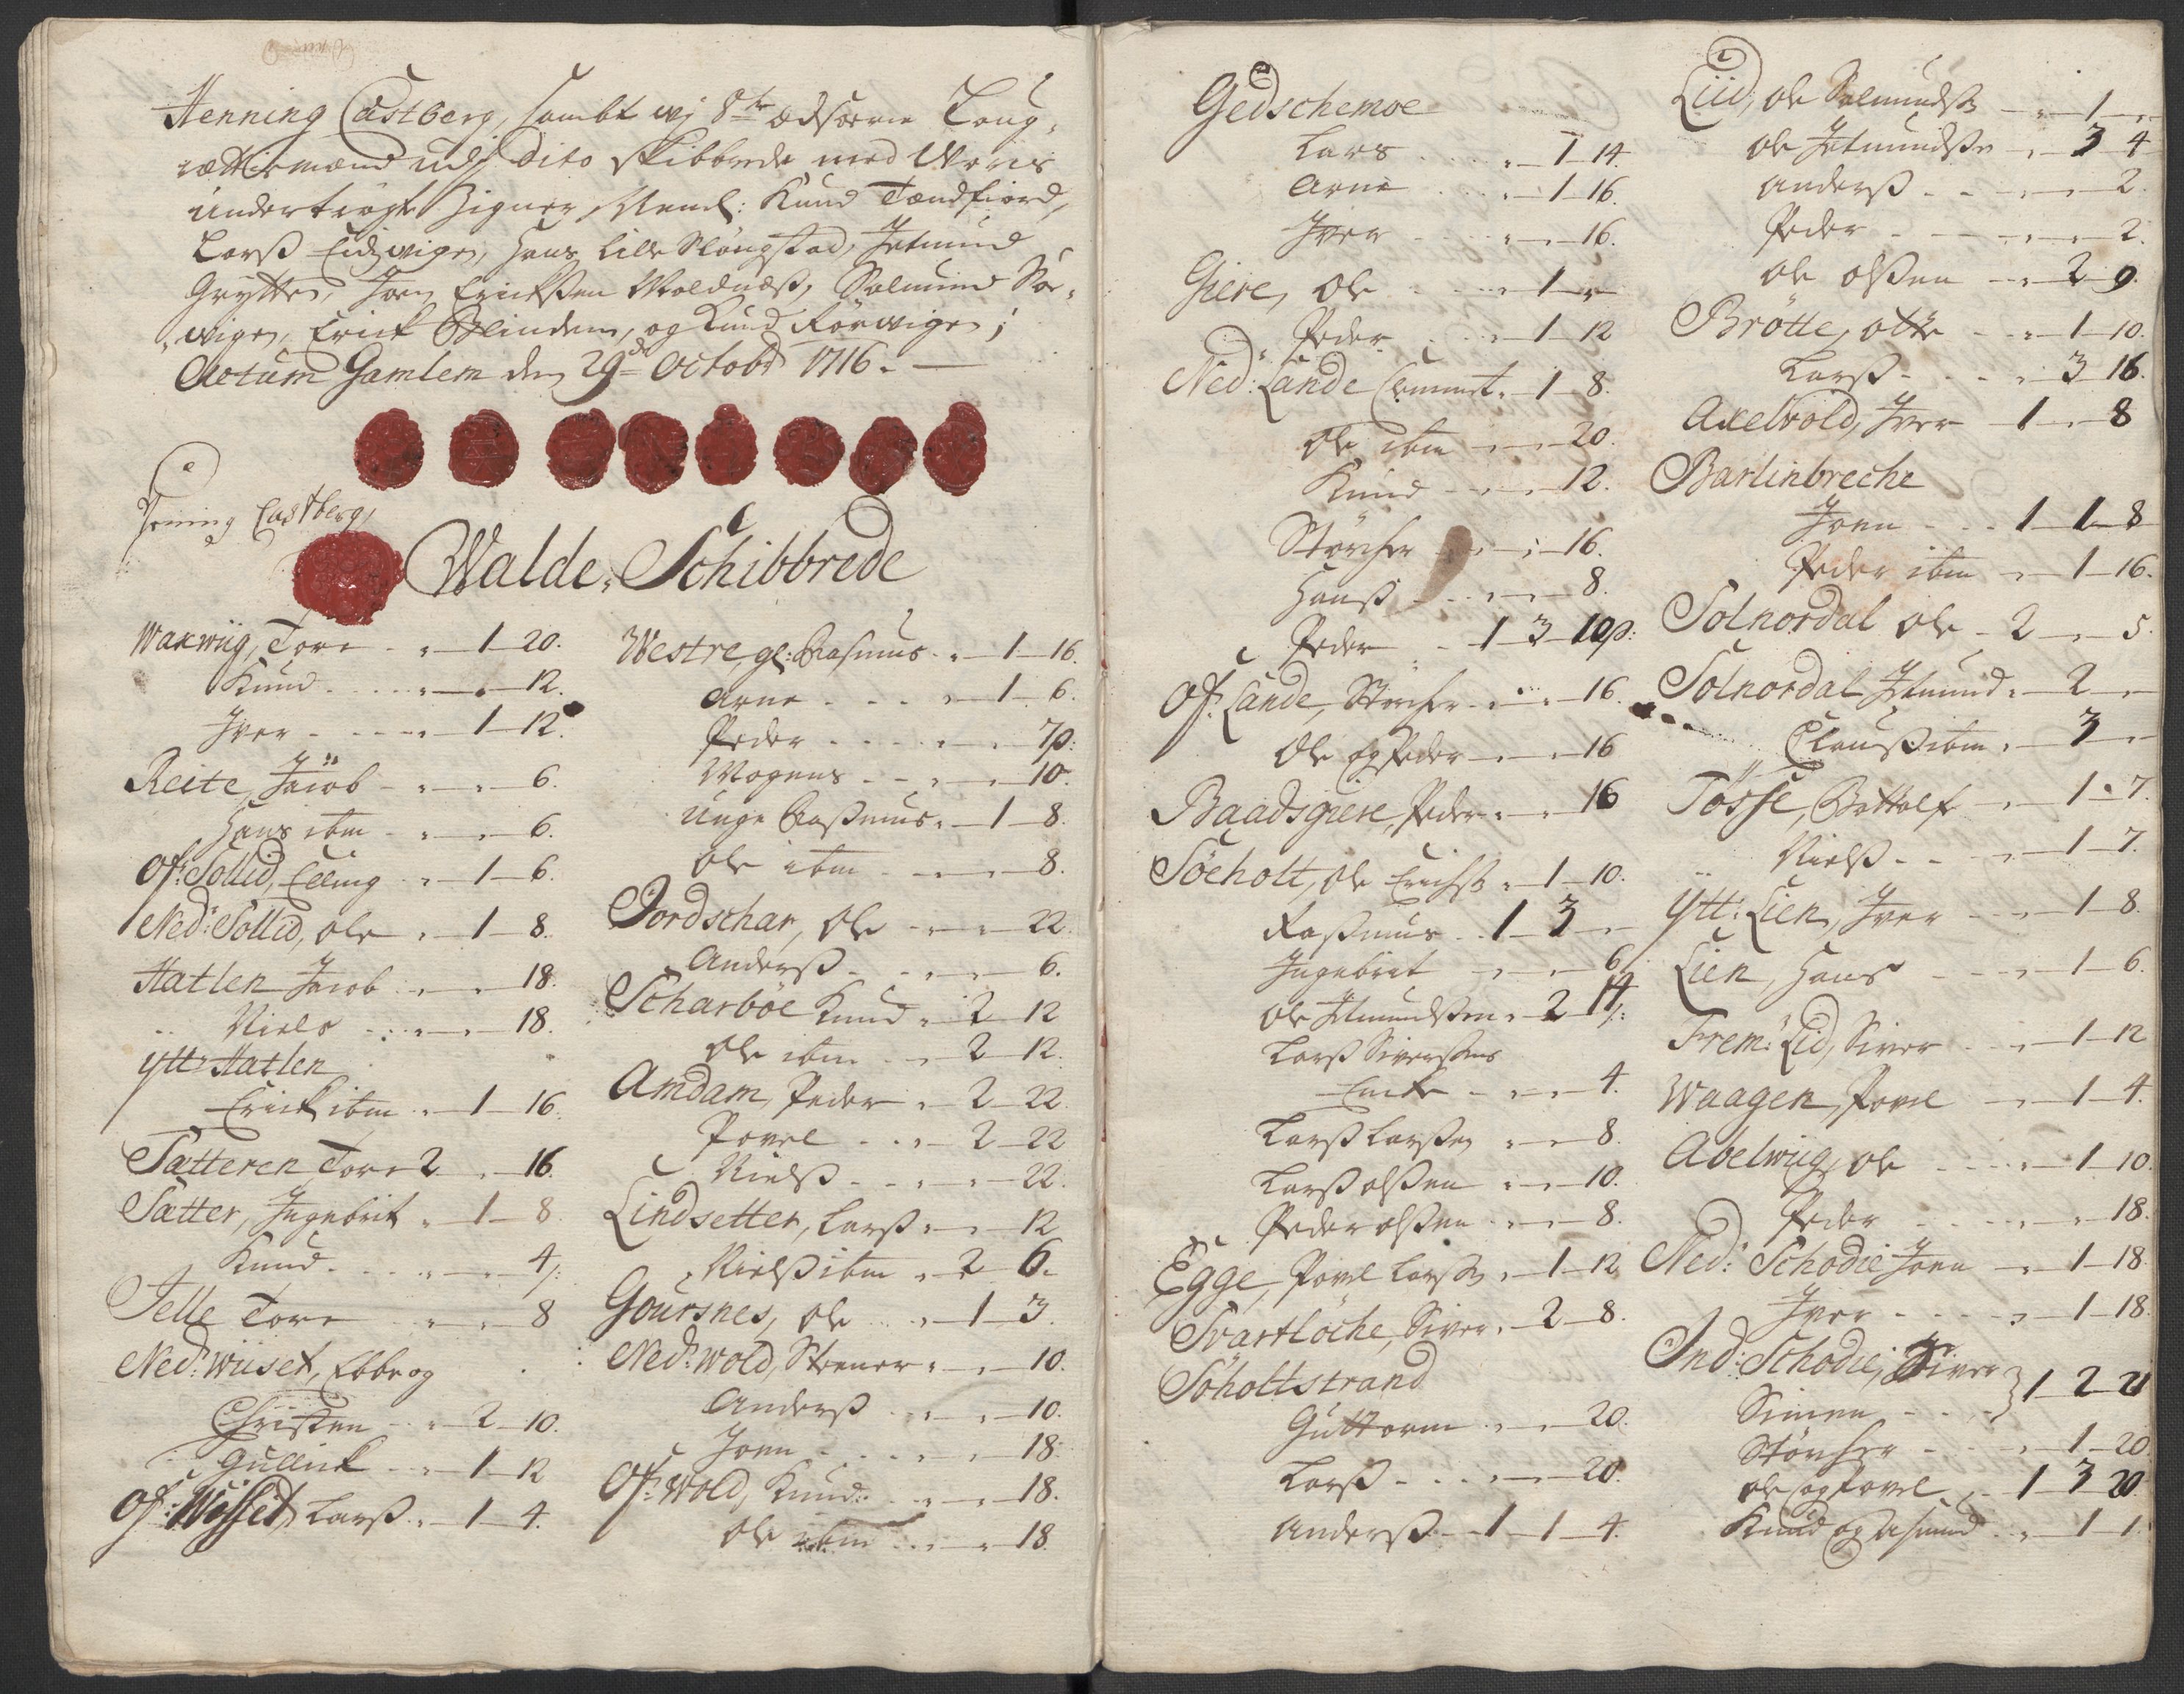 Henning Castberg, sambt vj 8te Edsorne Laug,
rættesmænd udj dito Skibbrede med Vores
undertrögte Zigner, Nemlig: Knud Tændfiord,
Larss Eidzvigen, Hans Lille Slöngstad, Jetmund
Grytten, Joen Erickssen Woldness, Salmund Sör,
wigen, Erick Blindem, og Knud Rörwigen;
Actum Gamlem den 29de Octobr 1716.
Hening Castberg,
Walde, Schibbrede
Waxwiig, Tore - „ 1 20.
Knud „ „ 12.
Iver „ 1 12.
Reite, Jacob - „ „ 6.
Hans ibm „ „ 6.
Of: Sollid, Elling „ 1 6.
Ned: Sollid, Ole „ 1 8.
Hatlen Jacob „ „ 18.
Niels „ „ 18.
Ytt: Hatlen
Erick ibm „ 1 16.
Sætteren Tore 2 „ 16.
Sætter, Ingebrit „ 1 8.
Knud „ „ 4/:
Jelle Tore „ „ 8
Ned: Wiiset, Ebbe og
Christen „ 2 10.
Gullick „ 1 12
Of: Wisset, Larss „ 1 4.
Westre, gl: Rasmus „ 1 16.
Arne „ 1 6.
Peder „ „ 7p:
Mogens „ „ 10.
Unge Rassmus „ 1 8.
Ole ibm „ „ 8.
Jordschar, Ole „ „ 22.
Anderss „ „ 6.
Scharböe Knud „ 2 12
Ole ibm „ 2 12.
Amdam, Peder „ 2 22.
Povel „ 2 22
Nielss „ „ 22.
Lindsetter, Larss „ „ 12
Nielss ibm „ 2 6.
Goursnes, Ole „ 1 3.
Ned: Wold, Steener „ „ 10.
Anderss „ „ 10.
Joen „ „ 18.
Of: Wold, Knud „ „ 18.
Ole ibm „ „ 18.
Gedschemoe
Lars „ 1 14.
Arne „ 1 16.
Iver „ „ 16.
Giere, Ole „ 1 „
Peder „ 1 12
Ned: Lande Clemmet „ 1 8.
Ole ibm „ „ 20.
Knud „ „ 12.
Störcher „ „ 16.
Hanss „ „ 8.
Peder 1 3 10p:
Of: Lande, Störcher „ „ 16.
Ole og Peder „ „ 16
Baadsgiere, Peder „ „ 16
Söeholt, Ole Erichss: „ 1 10.
Rassmus 1 3 „
Ingebrit „ „ 6/:
Ole Jetmundssen „ 2 14/:
Larss Siverssens
Encke „ „ 4.
Larss Larssen „ „ 8.
Larss Olssen „ „ 10.
Peder Olssen „ „ 8.
Egge, Povel Larss: „ 1 12
Svartlöche, Siver „ 2 8.
Söholtstrand
Guttorm „ „ 20.
Larss „ „ 20.
Anderss 1 1 4.
Liid, Ole Salmundss: „ 1 „
Ole Jetmundssen „ 3 4
Anderss „ „ 2.
Peder „ „ 2.
Ole Olssen „ 2 9.
Brötte, Otte „ 1 10.
Larss „ 3 16.
Axelvold, Iver 1 „ 8
Barlinbreche
Joen 1 1 8
Peder ibm „ 1 16.
Solnordal Ole 2 „ 5.
Solnordal Jetmund „ 2 „
Clauss ibm „ 3 „
Tösse, Bottolf „ 1 7.
Nielss „ 1 7.
Ytt: Lien, Iver „ 1 8.
Lien, Hans „ 1 6.
Frem: Lid, Siver „ 1 12
Waagen, Povel „ 1 4.
Abelwiig, Ole „ 1 10.
Peder „ „ 18.
Ned: Schodie Joen „ 1 18.
Iver „ 1 18.
Ind: Schodie, Siver
Simen } 1 2 21
Störcher „ 1 20
Ole og Povel 1 3 20.
Knud og Asmund „ 1 1.